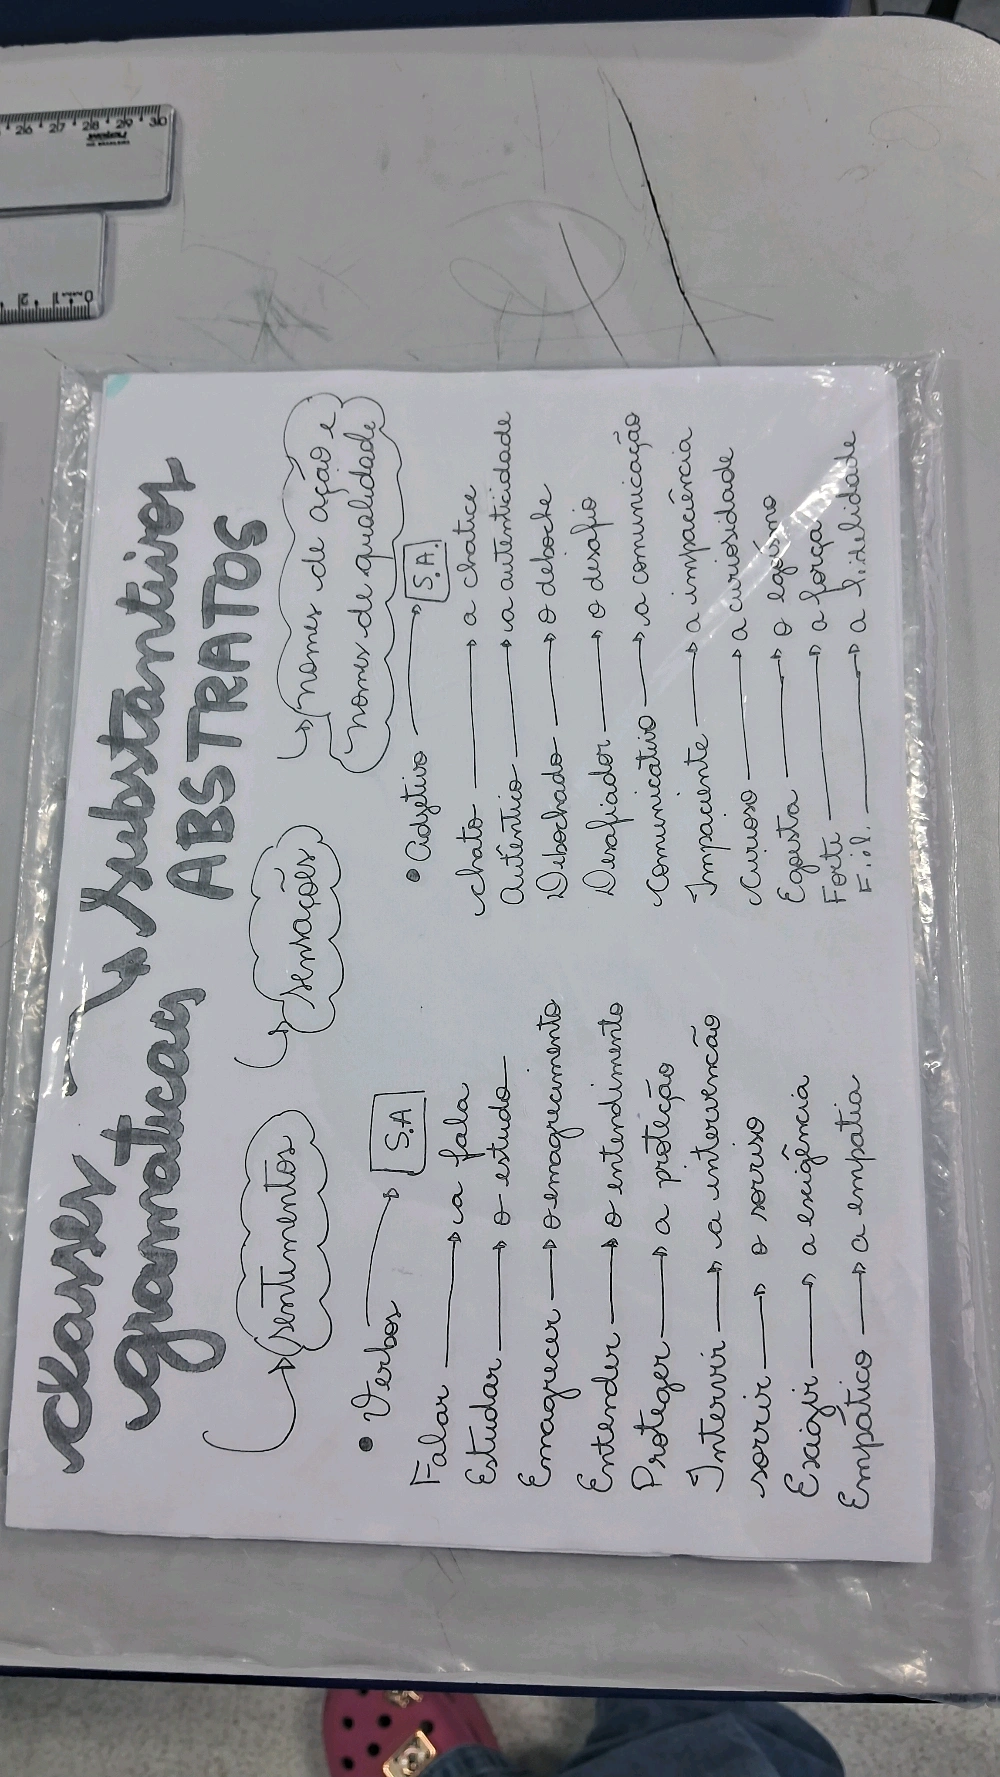 classes
gramaticas
substantivos
ABSTRATOS
sentimentos
sensações
nomes de ação e
nomes de qualidade
• Verbos S.A
Falar a fala
Estudar o estudo
Emagrecer o emagrecimento
Entender o entendimento
Proteger a proteção
Intervir a intervenção
sorrir o sorriso
Exigir a exigência
Empático a empatia
• adjetivo S.A.
chato a chatice
autêntico a autenticidade
Debochado o deboche
Desafiador o desafio
comunicativo a comunicação
Impaciente a impaciência
curioso a curiosidade
Egoista o egoismo
Forte a força
a fidelidade
26 27 28 29 30
0 1 2